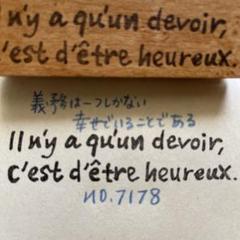 Il n'y a qu'un devoir,
c'est d'être heureux.
義務は一つしかない
幸せでいることである
Il n'y a qu'un devoir,
c'est d'être heureux.
no.7178